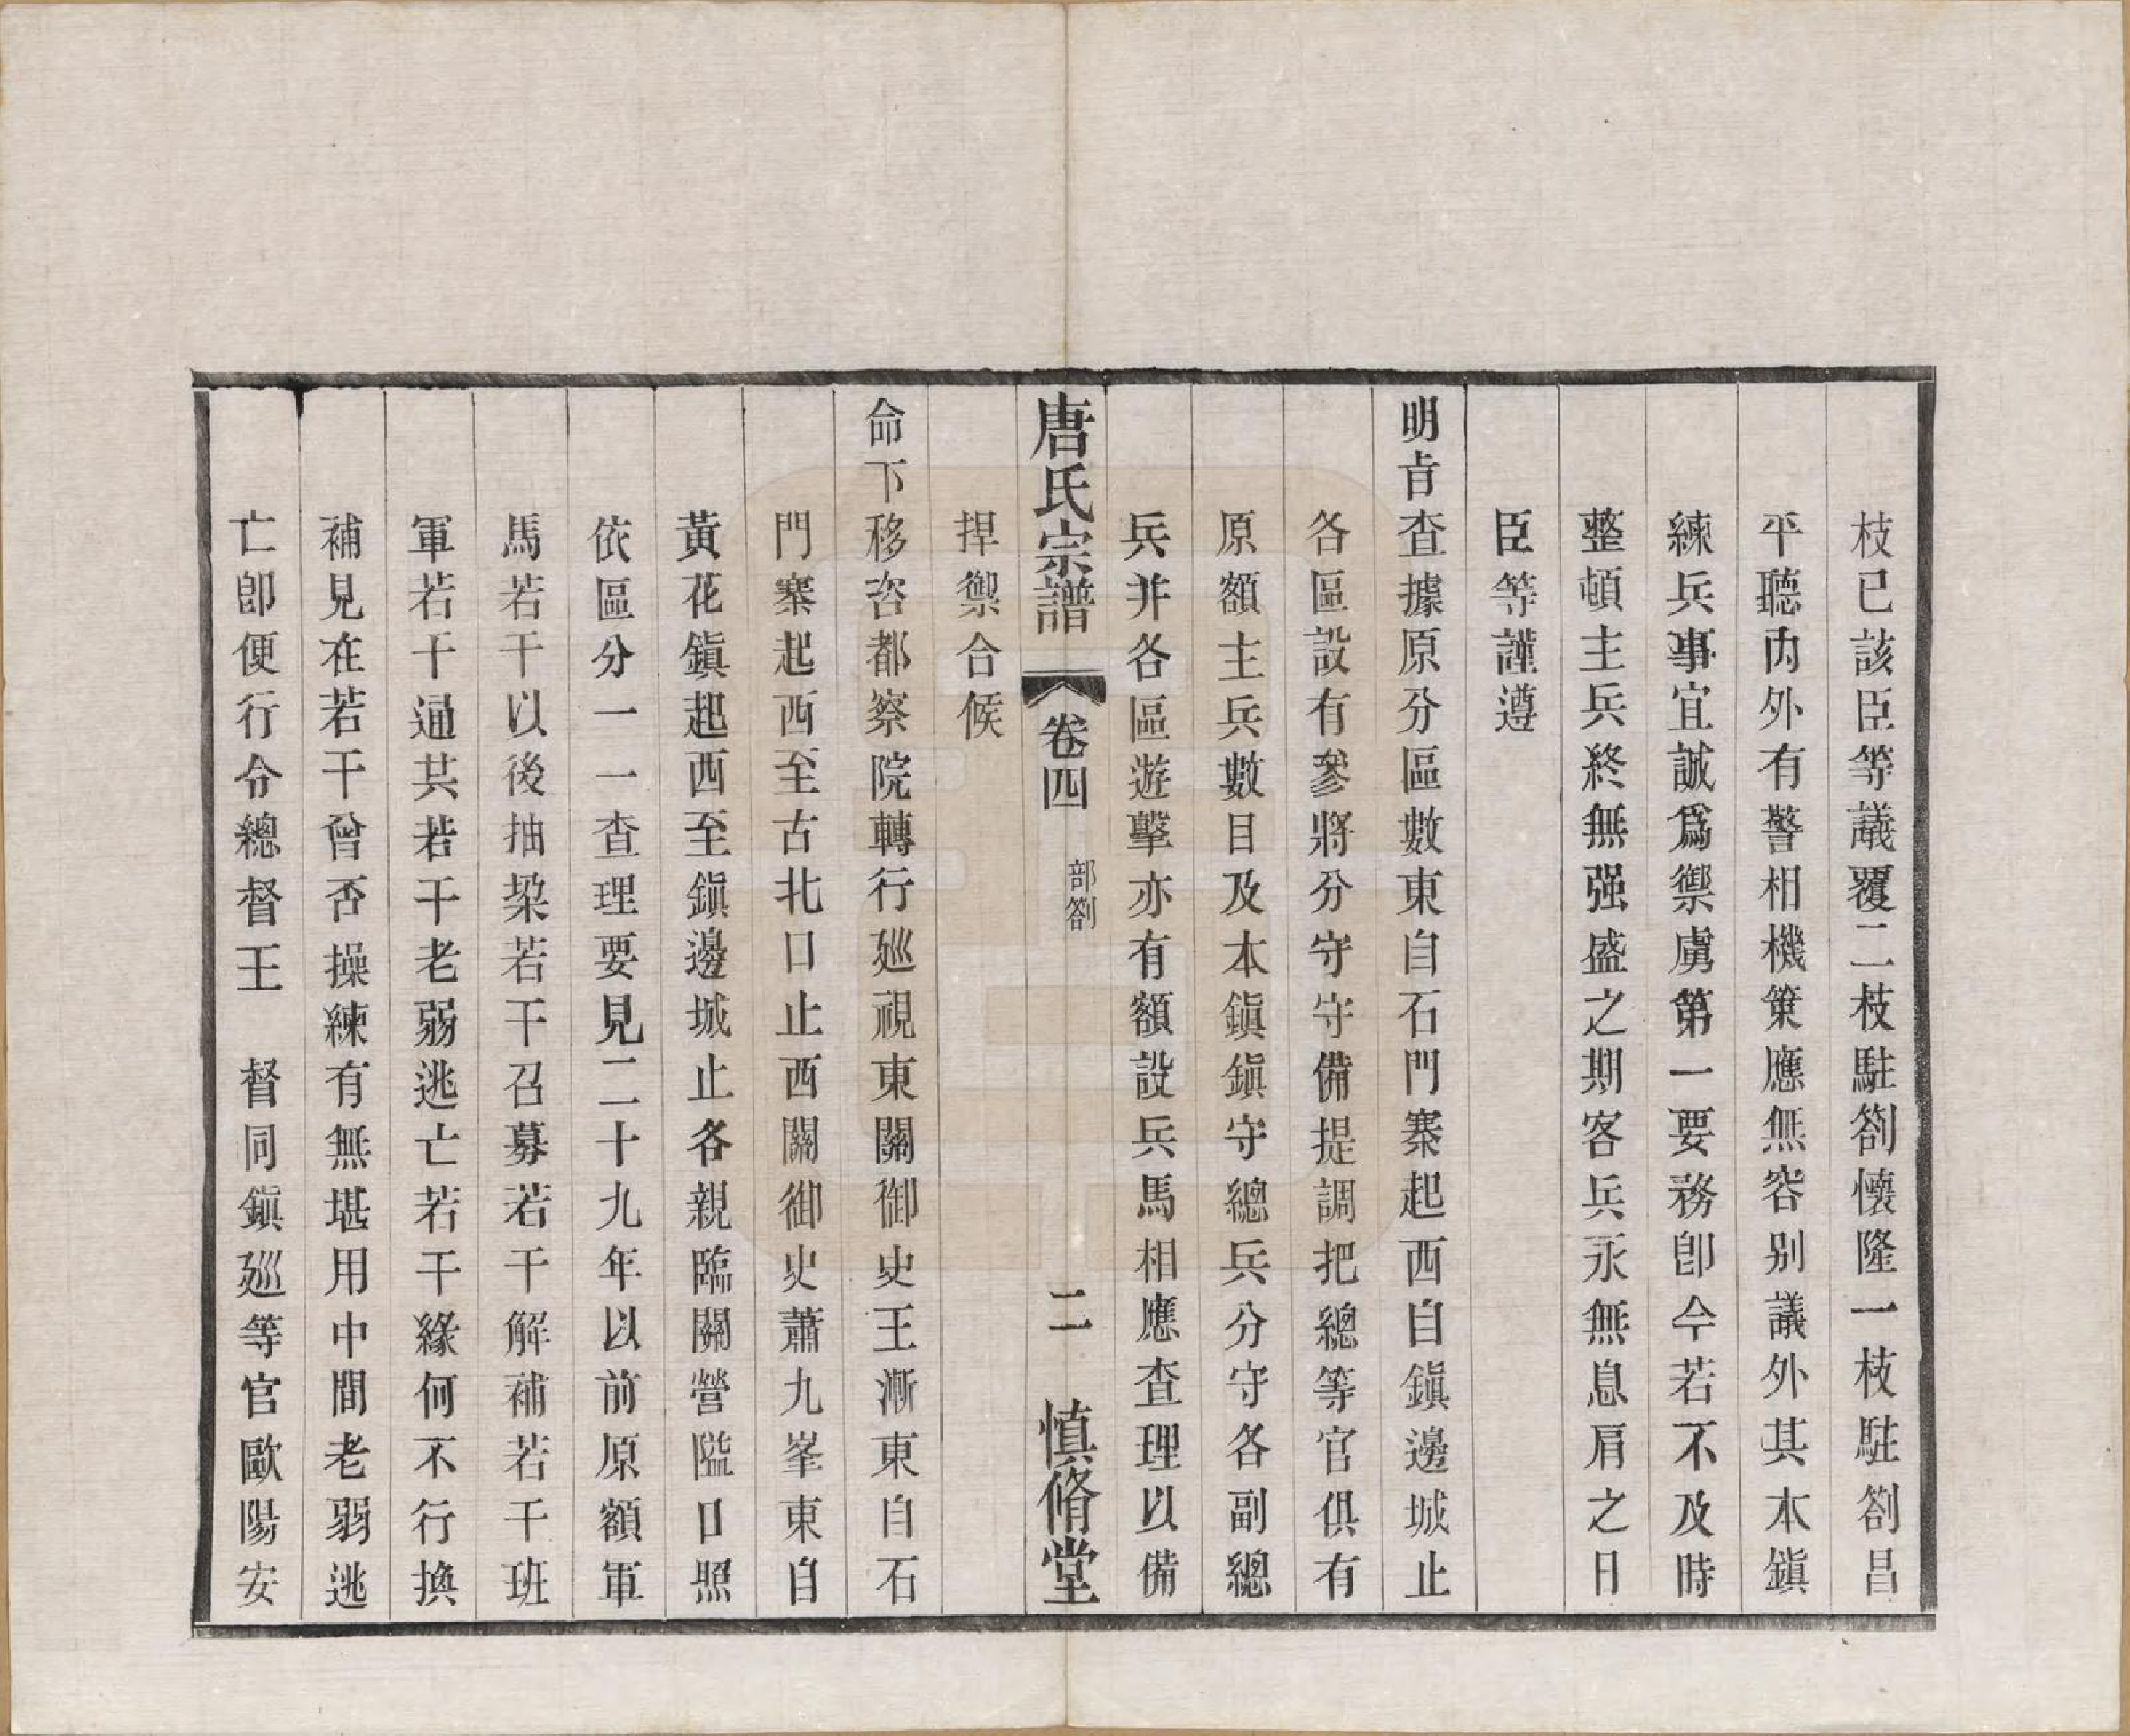 枝已該臣等議覆二枝駐劄懷隆一枝駐劄昌
平聽內外有警相機策應無容别議外其本鎮
練兵事宜誠爲禦虜第一要務卽今若不及時
整頓主兵終無强盛之期客兵永無息肩之日
臣等謹遵
明旨查據原分區數東自石門寨起西自鎮邊城止
各區設有參將分守守備提調把總等官俱有
原額主兵數目及本鎮鎮守總兵分守各副總
兵并各區遊擊亦有額設兵馬相應查理以備
唐氏宗譜 卷四 部劄 二 慎脩堂
捍禦合候
命下移咨都察院轉行廵視東關御史王漸東自石
門寨起西至古北口止西關御史蕭九峯東自
黃花鎮起西至鎮邊城止各親臨關營隘口照
依區分一一查理要見二十九年以前原額軍
馬若干以後抽垜若干召募若干解補若干班
軍若干通共若干老弱逃亡若干緣何不行換
補見在若干曾否操練有無堪用中間老弱逃
亡卽便行令總督王 督同鎮廵等官歐陽安